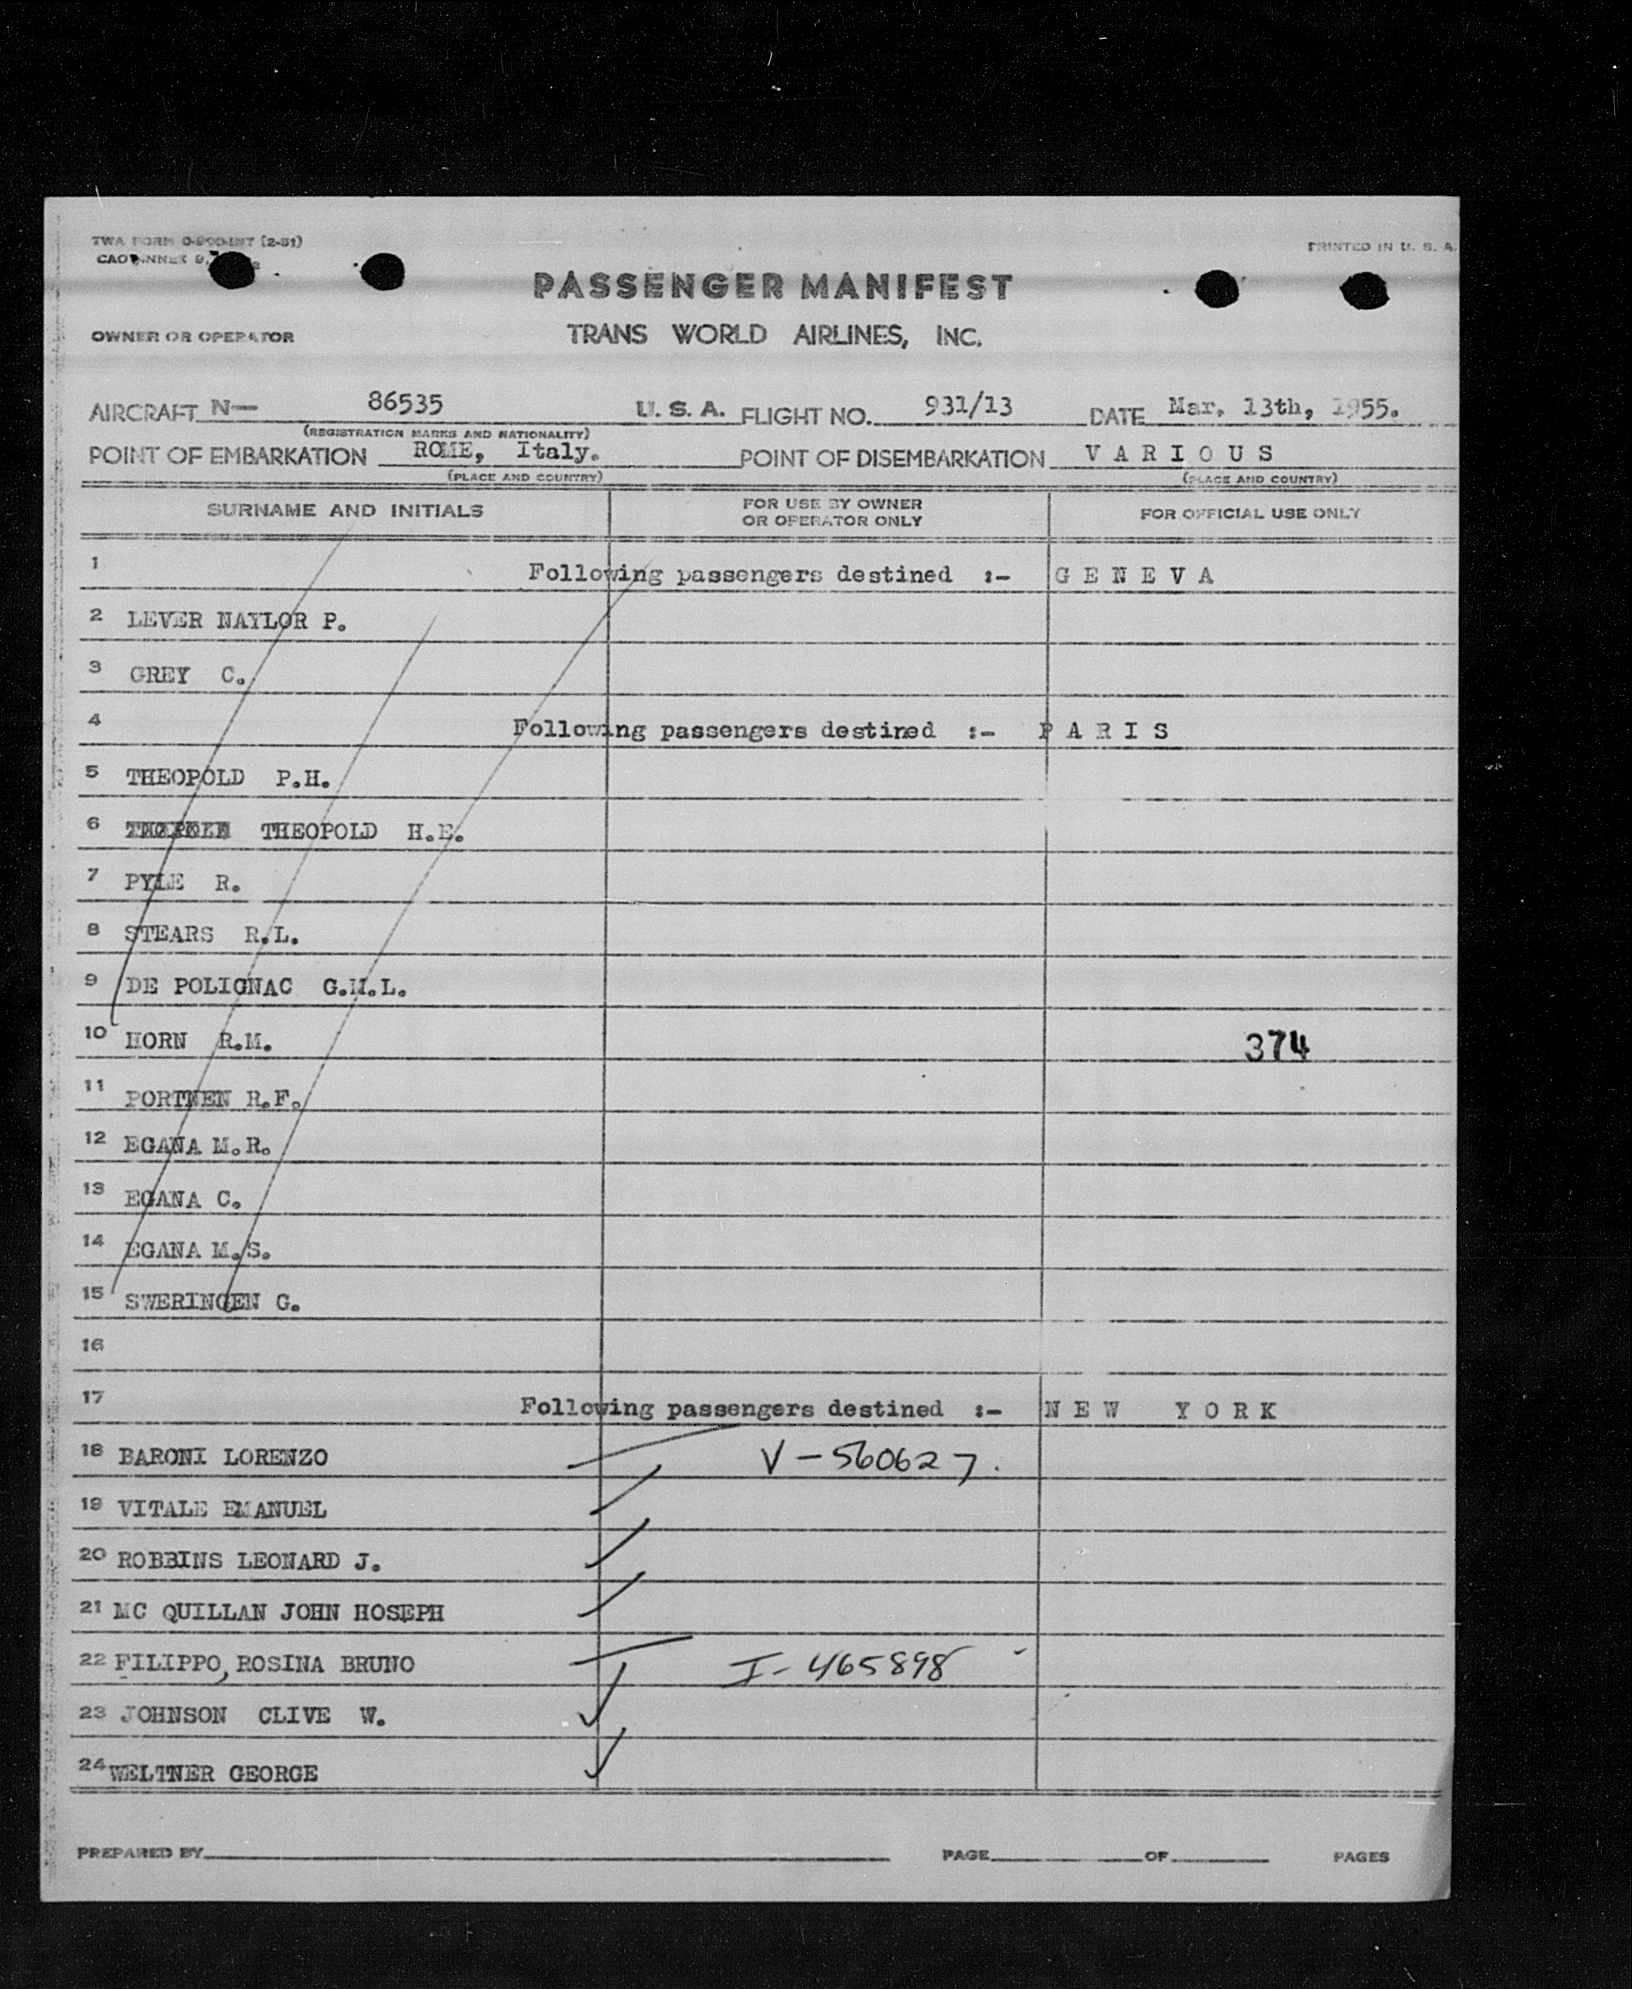 TWA FORM
PRINTED IN U. S. A.
PASSENGER MANIFEST
OWNER OR OPERATOR TRANS WORLD AIRLINES, INC.
AIRCRAFT N— 86535 U. S. A. FLIGHT NO. 931/13 DATE Mar. 13th, 1955.
(REGISTRATION MARKS AND NATIONALITY)
POINT OF EMBARKATION ROME, Italy. POINT OF DISEMBARKATION V A R I O U S
(PLACE AND COUNTRY) (PLACE AND COUNTRY)
SURNAME AND INITIALS FOR USE BY OWNER OR OPERATOR ONLY FOR OFFICIAL USE ONLY
1 Following passengers destined :- G E N E V A
2 LEVER NAYLOR P.
3 GREY C.
4 Following passengers destined :- P A R I S
5 THEOPOLD P.H.
6 THEOPOLD H.E.
7 PYLE R.
8 STEARS R.L.
9 DE POLIGNAC G.M.L.
10 HORN R.M. 374
11 PORTNEN R.F.
12 EGANA M.R.
13 EGANA C.
14 EGANA M.S.
15 SWERINGEN G.
16
17 Following passengers destined :- N E W Y O R K
18 BARONI LORENZO V - 560627.
19 VITALE EMANUEL
20 ROBBINS LEONARD J.
21 MC QUILLAN JOHN HOSEPH
22 FILIPPO, ROSINA BRUNO I - 465898
23 JOHNSON CLIVE W.
24 WELTNER GEORGE
PREPARED BY PAGE OF PAGES